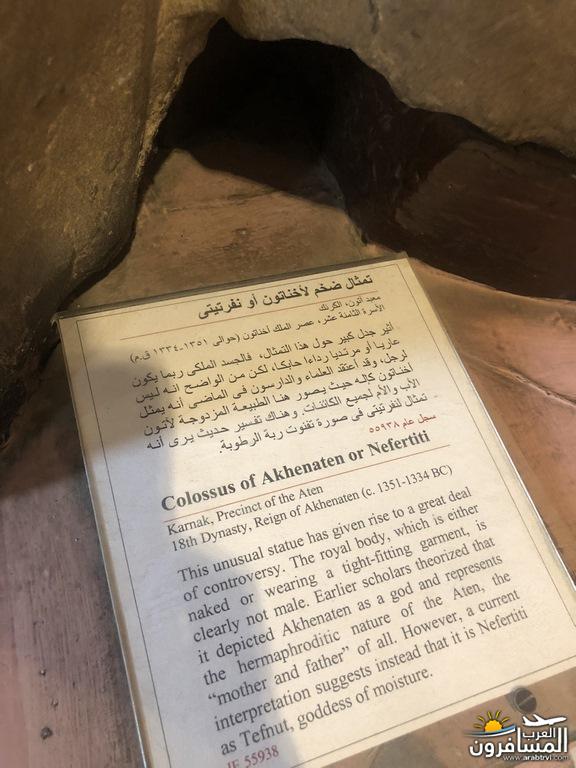 تمثال ضخم لأخناتون أو نفرتيتى
معبد آتون، الكرنك
الأسرة الثامنة عشر، عصر الملك أخناتون (حوالى ١٣٥١-١٣٣٤ ق.م)
أثير جدل كبير حول هذا التمثال، فالجسد الملكى ربما يكون
عارياً أو مرتدياً رداءاً حابكا، لكن من الواضح انه ليس
لرجل، وقد أعتقد العلماء والدارسون فى الماضى أنه يمثل
أخناتون كإله حيث يصور هنا الطبيعة المزدوجة لآتون
الأب والأم لجميع الكائنات. وهناك تفسير حديث يرى أنه
تمثال لنفرتيتى فى صورة تفنوت ربة الرطوبة.
سجل عام ٥٥٩٣٨
Colossus of Akhenaten or Nefertiti
Karnak, Precinct of the Aten
18th Dynasty, Reign of Akhenaten (c. 1351-1334 BC)
This unusual statue has given rise to a great deal
of controversy. The royal body, which is either
naked or wearing a tight-fitting garment, is
clearly not male. Earlier scholars theorized that
it depicted Akhenaten as a god and represents
the hermaphroditic nature of the Aten, the
“mother and father” of all. However, a current
interpretation suggests instead that it is Nefertiti
as Tefnut, goddess of moisture.
JE 55938
العرب
المسافرون
www.arabtrvl.com